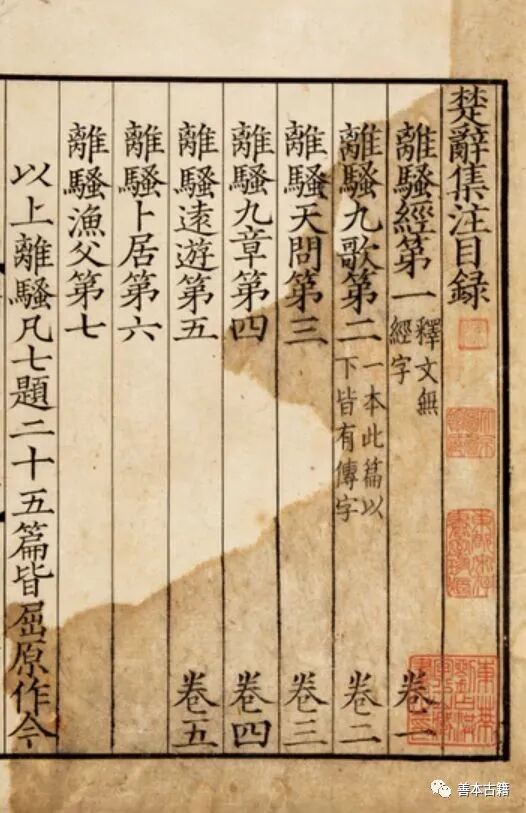 楚辭集注目録
離騷經第一 釋文無經字 卷一
離騷九歌第二 一本此篇以下皆有傳字 卷二
離騷天問第三 卷三
離騷九章第四 卷四
離騷遠遊第五 卷五
離騷卜居第六
離騷漁父第七
以上離騷凡七題二十五篇皆屈原作今
善本古籍